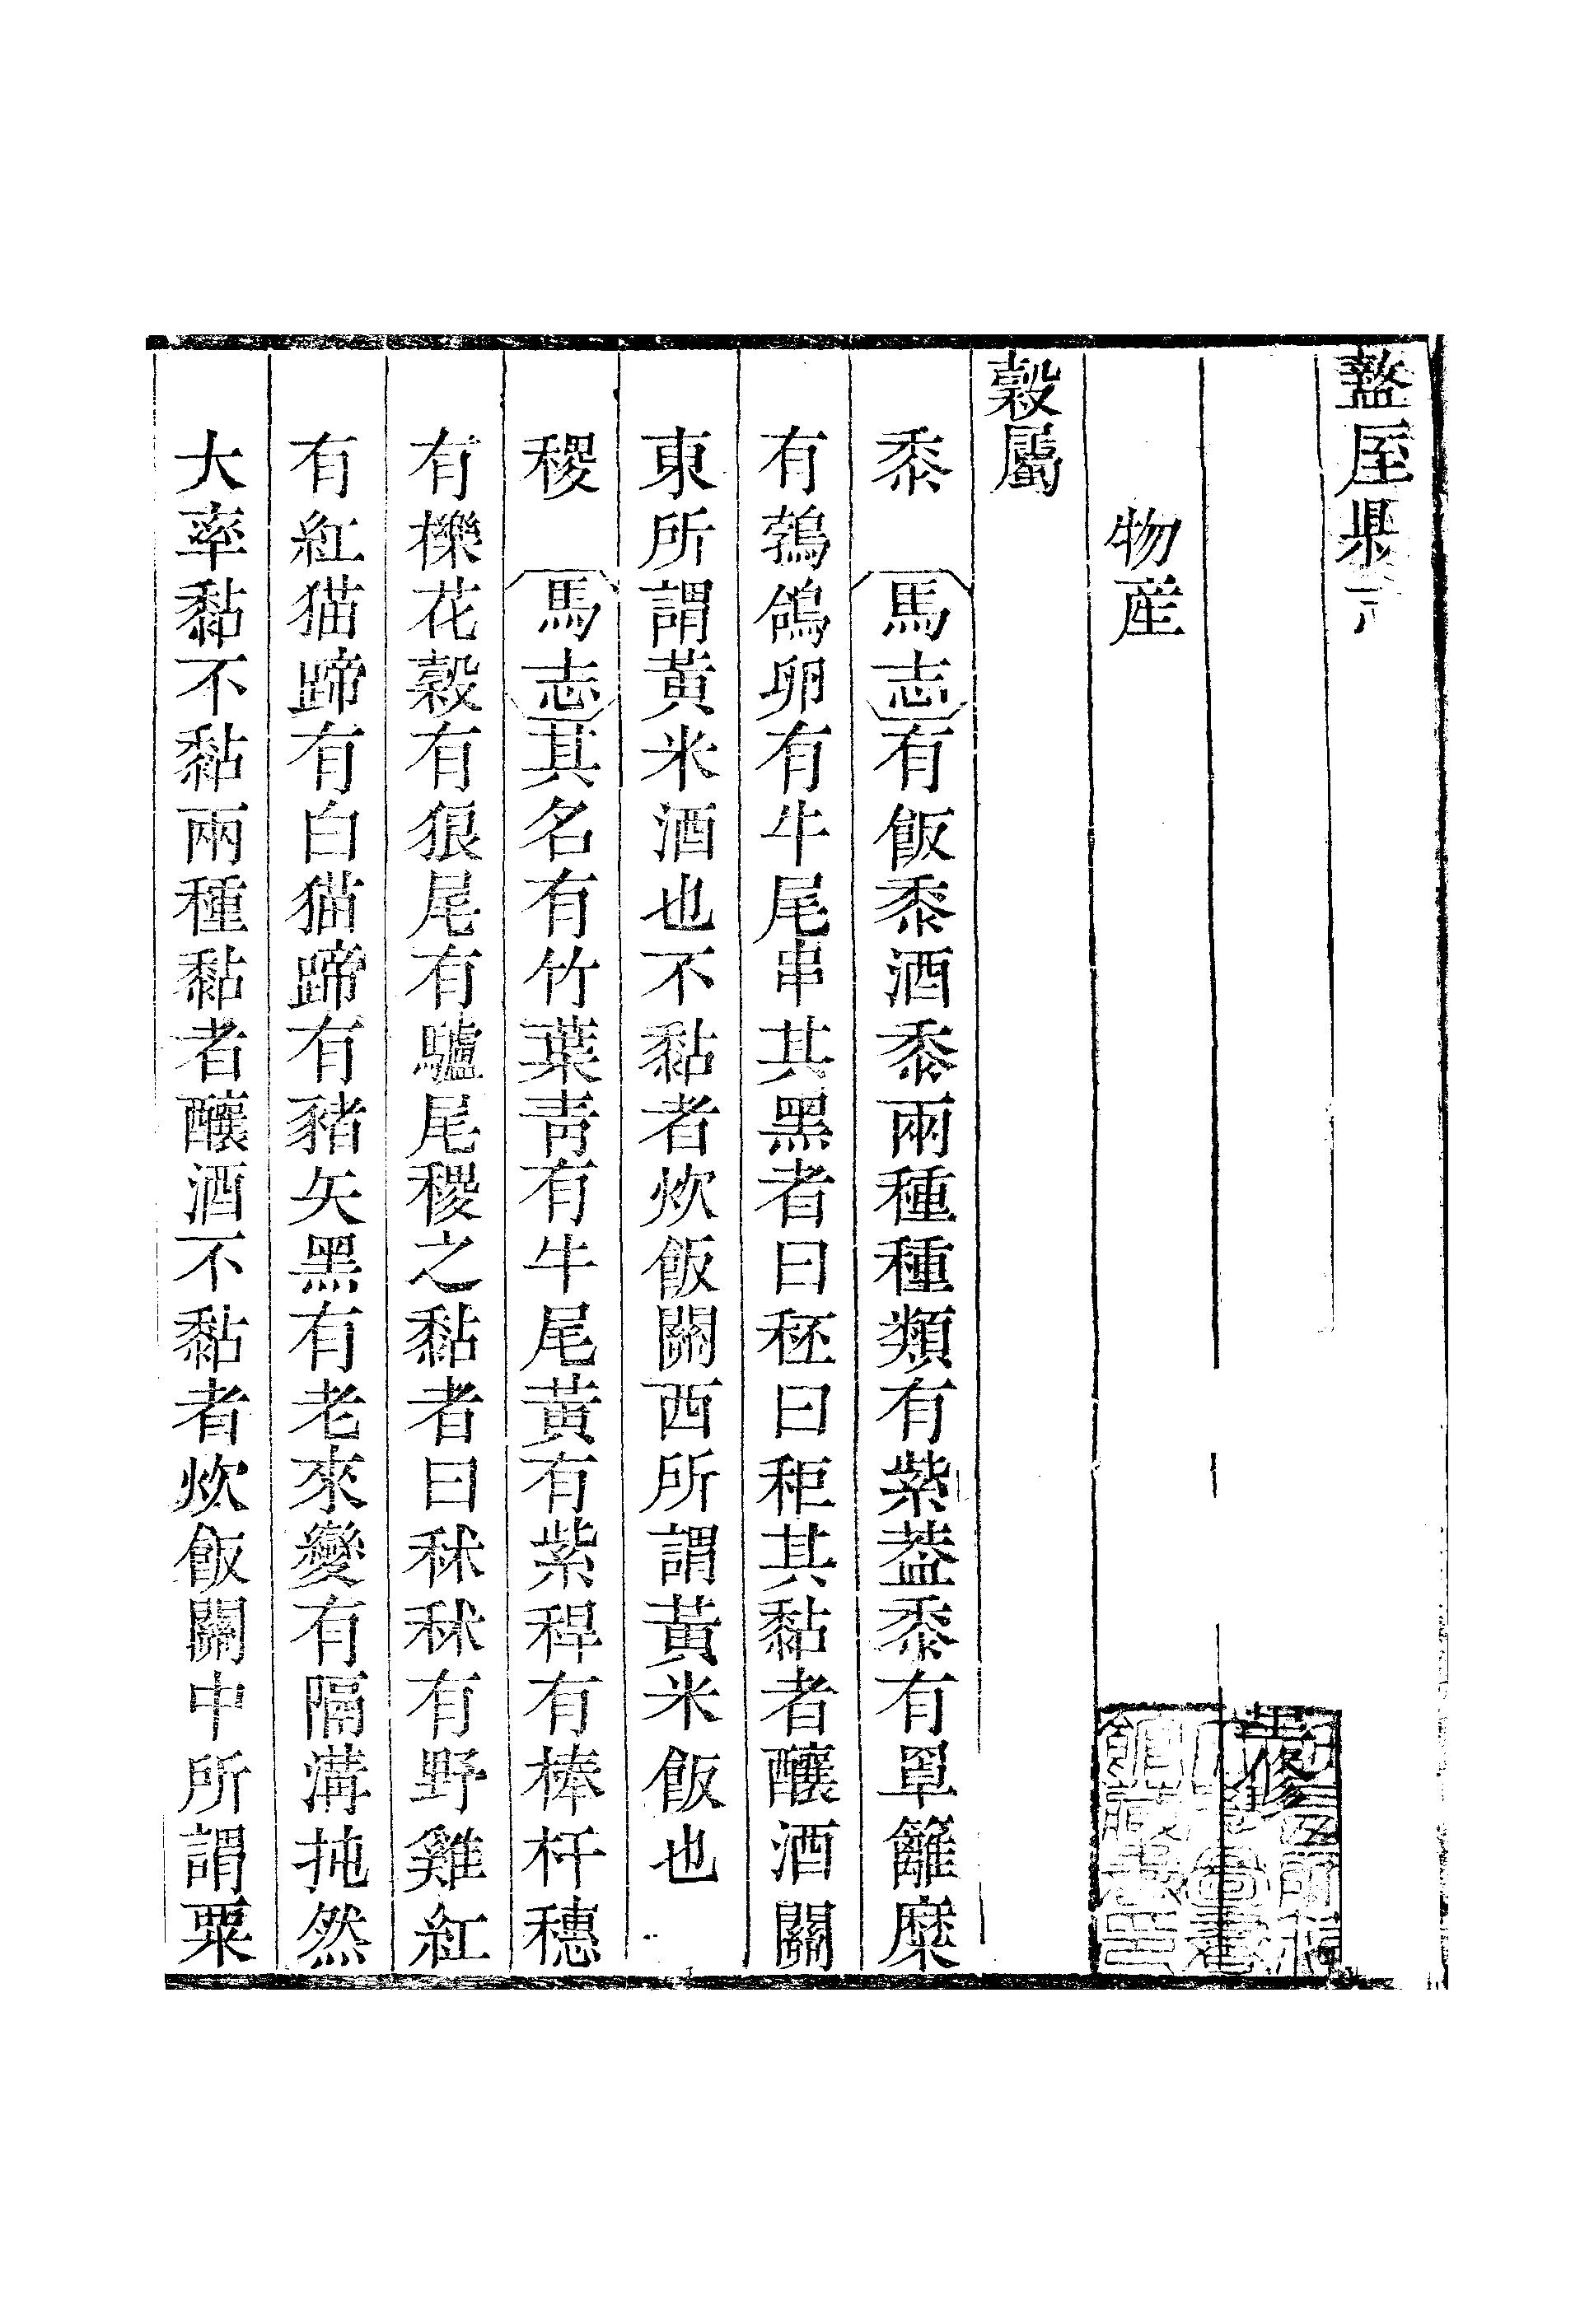 盩厔縣
修
物産
穀屬
黍 馬志有飯黍酒黍兩種種類有紫葢黍有罩籬糜
有鵓鴿卵有牛尾串其黑者曰秠曰秬其黏者釀酒關
東所謂黃米酒也不黏者炊飯關西所謂黃米飯也
稷 馬志其名有竹葉青有牛尾黃有紫稈有棒杆穗
有櫟花穀有狼尾有驢尾稷之黏者曰秫秫有野雞紅
有紅猫蹄有白猫蹄有豬矢黑有老來變有隔溝扽然
大率黏不黏兩種黏者釀酒不黏者炊飯關中所謂粟